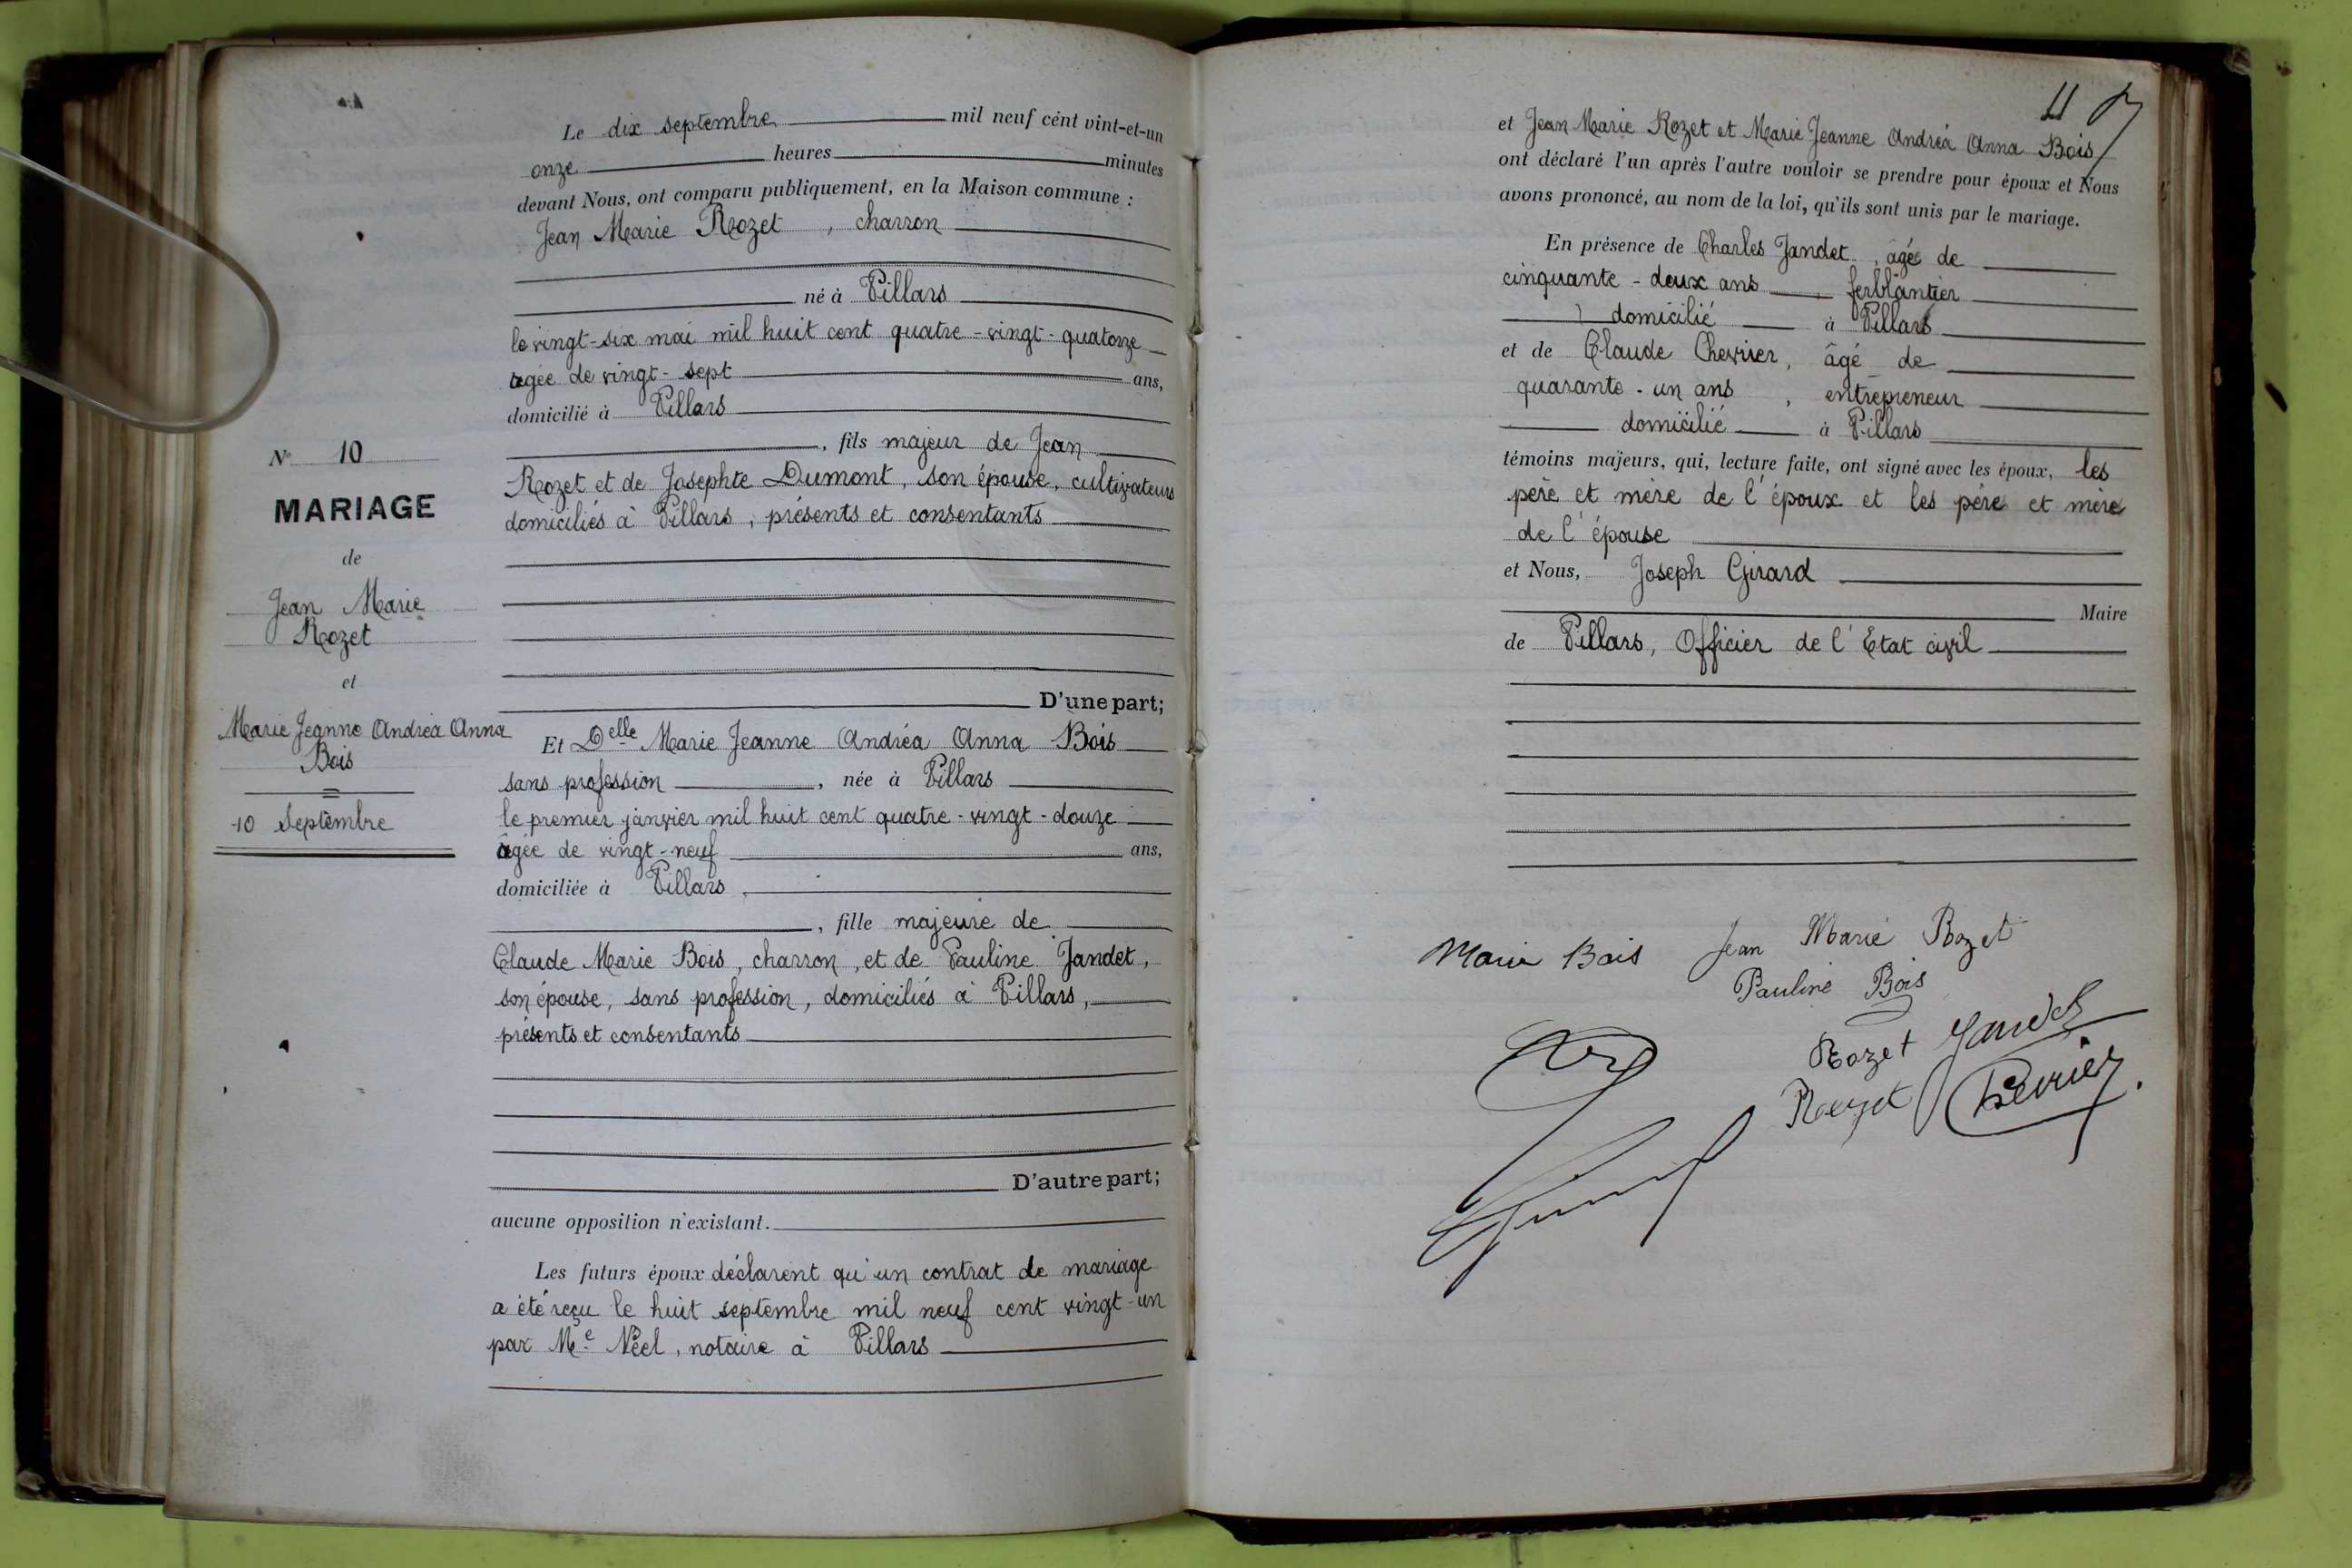 Le dix septembre mil neuf cént vint-et-un
onze heures minutes
devant Nous, ont comparu publiquement, en la Maison commune :
Jean Marie Rozet, charron
né à Villars
le vingt-six mai mil huit cent quatre-vingt-quatorze
agée de vingt-sept ans,
domicilié à Villars
, fils majeur de Jean
Rozet et de Josephte Dumont, son épouse, cultivateurs
domiciliés à Villars, présents et consentants
D'une part;
Et Delle Marie Jeanne Andréa Anna Bois
sans profession, née à Villars
le premier janvier mil huit cent quatre-vingt-douze
âgée de vingt-neuf ans,
domiciliée à Villars,
, fille majeure de
Claude Marie Bois, charron, et de Pauline Jandet,
son épouse, sans profession, domiciliés à Villars,
présents et consentants
D'autre part;
aucune opposition n'existant.
Les futurs époux déclarent qu'un contrat de mariage
a été reçu le huit septembre mil neuf cent vingt-un
par Me Néel, notaire à Villars
No 10
MARIAGE
de
Jean Marie
Rozet
et
Marie Jeanne Andréa Anna
Bois
10 Septembre
et Jean Marie Rozet et Marie Jeanne Andréa Anna Bois
ont déclaré l'un après l'autre vouloir se prendre pour époux et Nous
avons prononcé, au nom de la loi, qu'ils sont unis par le mariage.
En présence de Charles Jandet, âgé de
cinquante-deux ans, ferblantier
domicilié à Villars
et de Claude Chevrier, âgé de
quarante-un ans, entrepreneur
domicilié à Villars
témoins majeurs, qui, lecture faite, ont signé avec les époux, les
père et mère de l'époux et les père et mère
de l'épouse
et Nous, Joseph Girard
Maire
de Villars, Officier de l'Etat civil
Marie Bois Jean Marie Rozet
Pauline Bois
Rozet Jandet
Rozet Chevrier